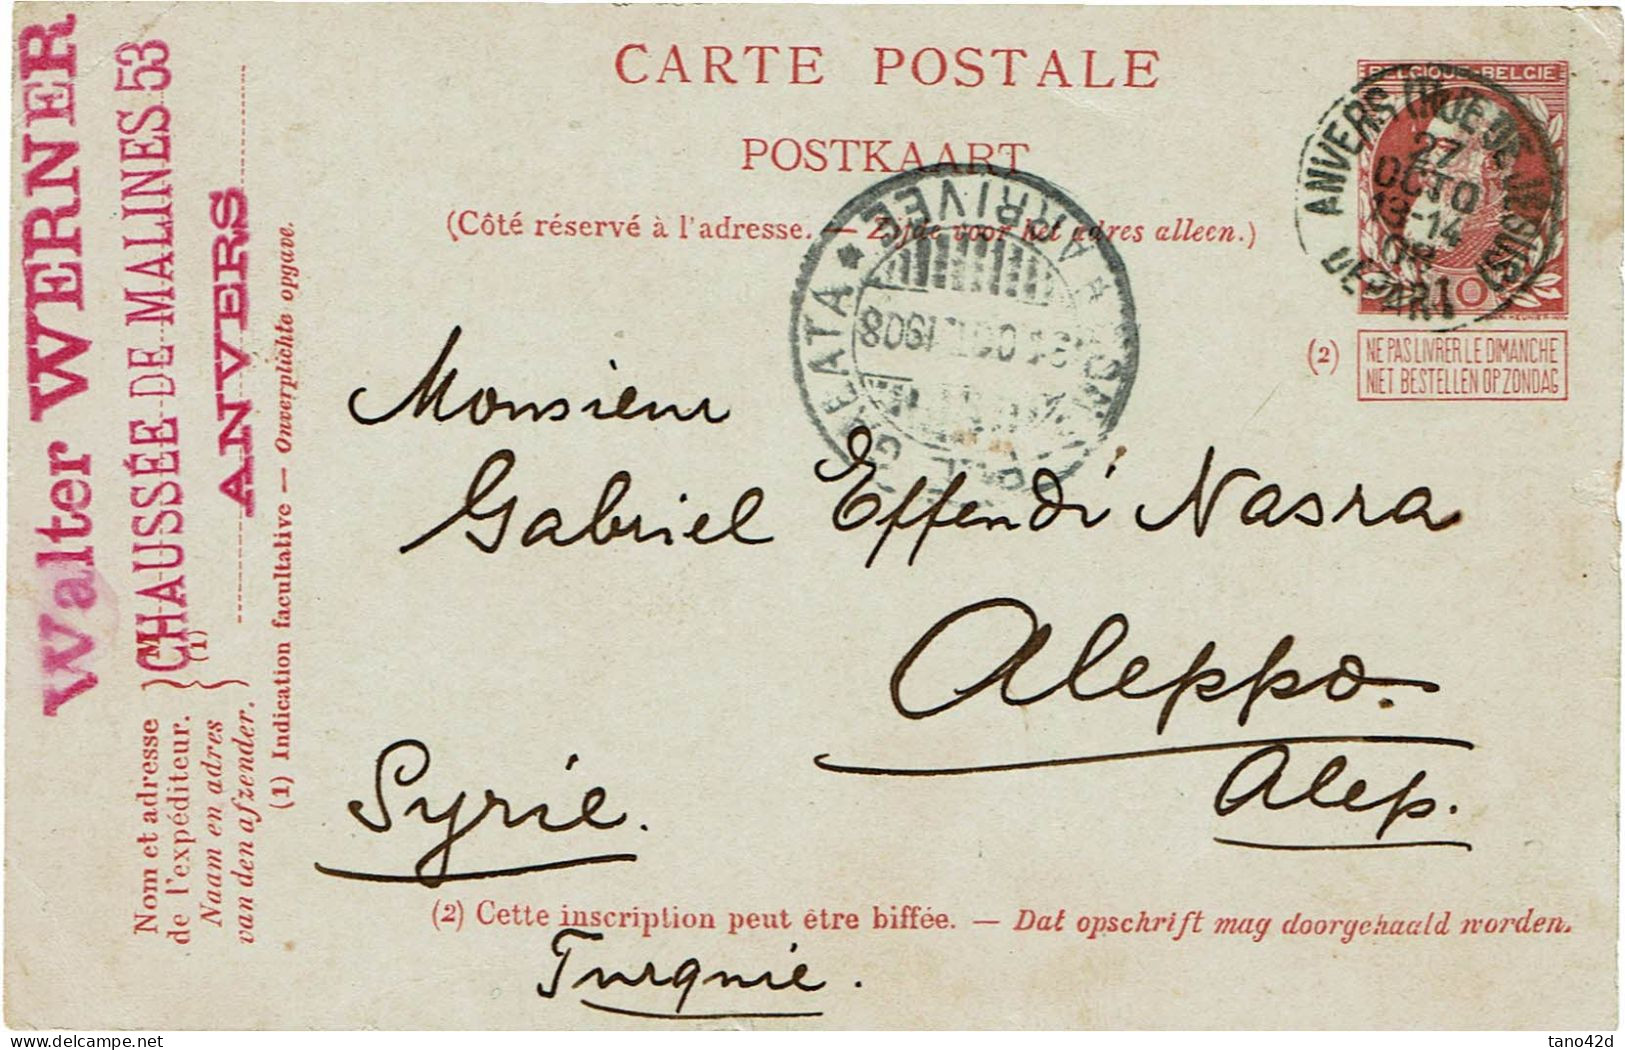 CARTE POSTALE
POSTKAART
(Côté réservé à l'adresse. — Zijde voor het adres alleen.)
Walter WERNER
CHAUSSÉE DE MALINES 53
ANVERS
M
(1)
Nom et adresse
de l'expéditeur.
Naam en adres
van den afzender.
(1) Indication facultative — Onverplichte opgave.
BELGIQUE BELGIE
10
ANVERS (RUE DE
27
OCTO
13-14
08
DEPART
GALATA * ARRIVÉE
OCT 1908
(2)
NE PAS LIVRER LE DIMANCHE
NIET BESTELLEN OP ZONDAG
Monsieur
Gabriel Effendi Nasra
Aleppo.
Alep.
Syrie.
(2) Cette inscription peut être biffée. — Dat opschrift mag doorgehaald worden.
Turquie.
delcampe.net
tano42d